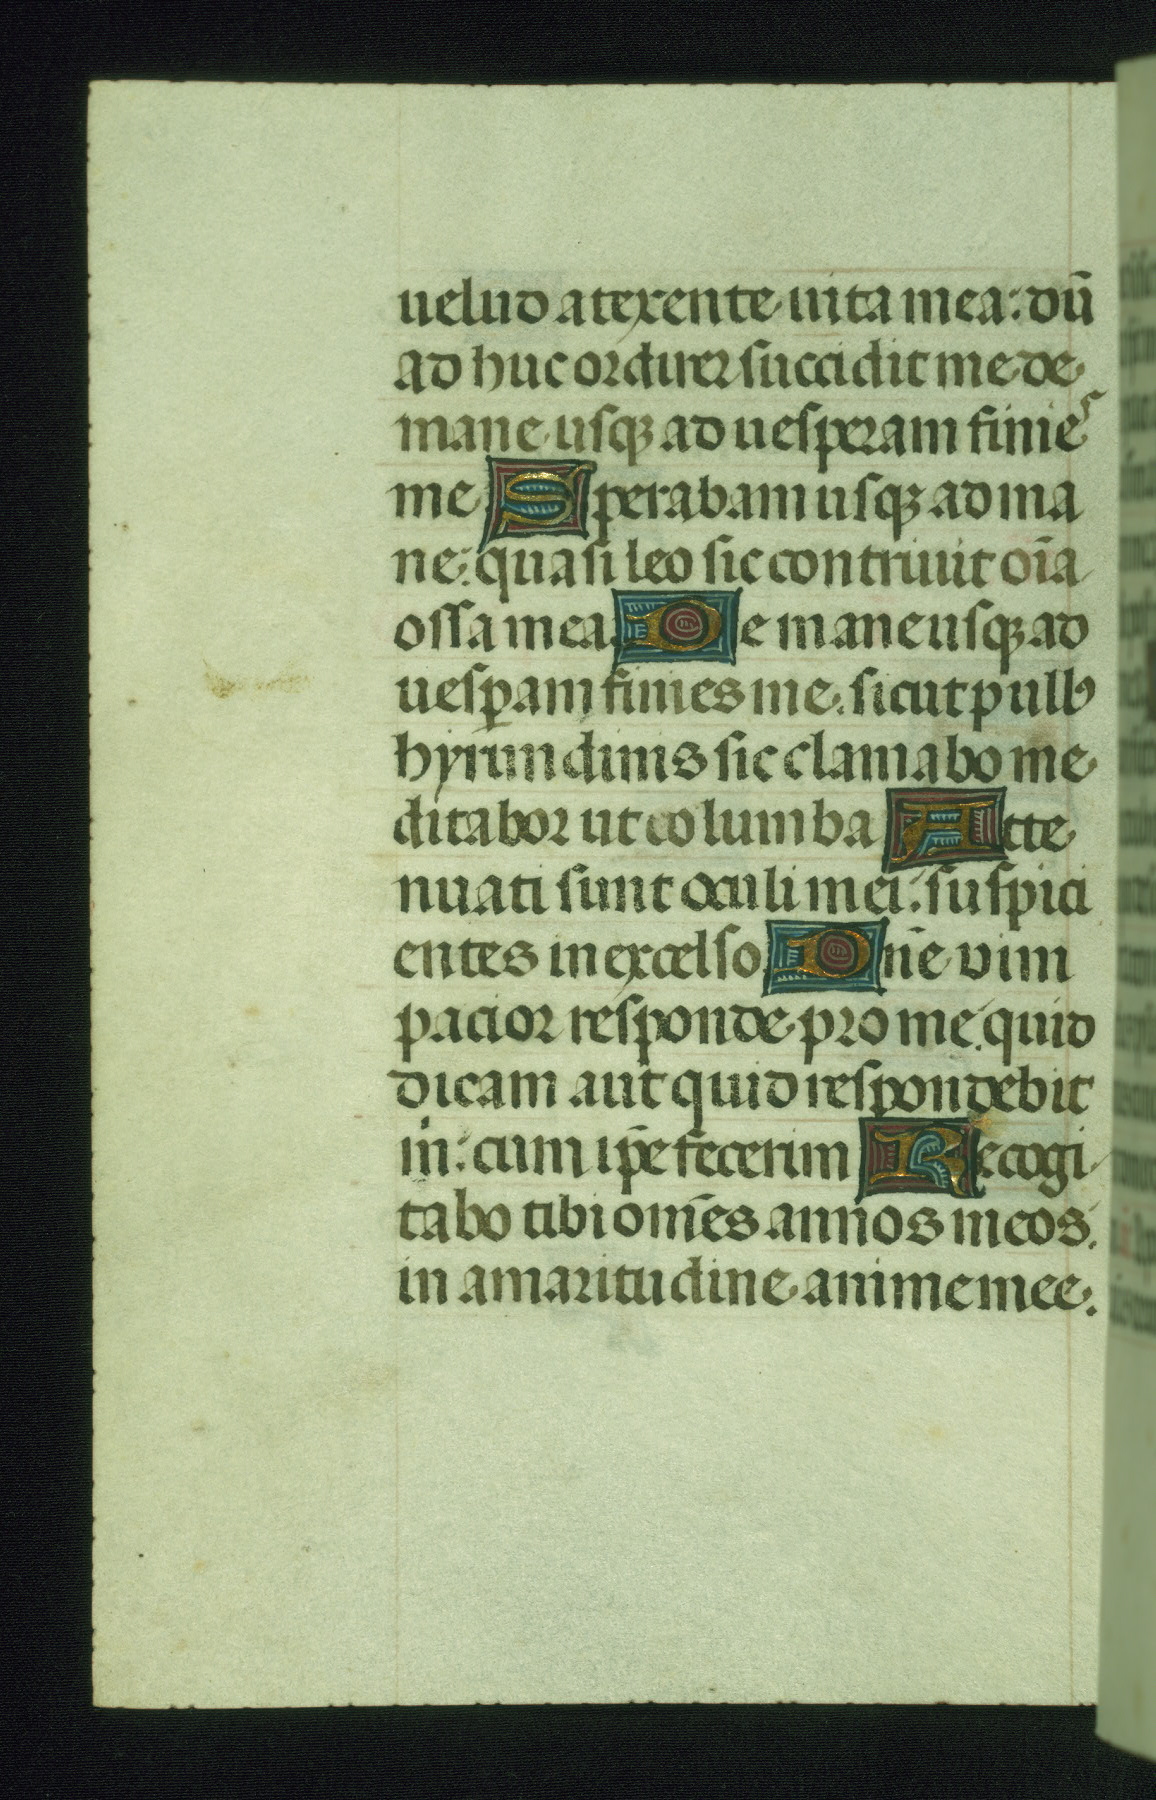 uelud a texente uita mea: dū
ad huc ordirer succidit me de
mane usqꝫ ad uesperam finieˢ
me Sperabam usqꝫ ad ma
ne: quasi leo sic contriuit oīa
ossa mea. De mane usqꝫ ad
uesꝑam finies me. sicut pullꝰ
hyrundinis sic clamabo me
ditabor ut columba Atte
nuati sunt oculi mei: suspici
entes in excelso. Dn̄e vim
pacior responde pro me. quid
dicam aut quid respondebit
ṁ: cum ip̄e fecerim Recogi
tabo tibi om̄es annos meos.
in amaritudine anime mee.